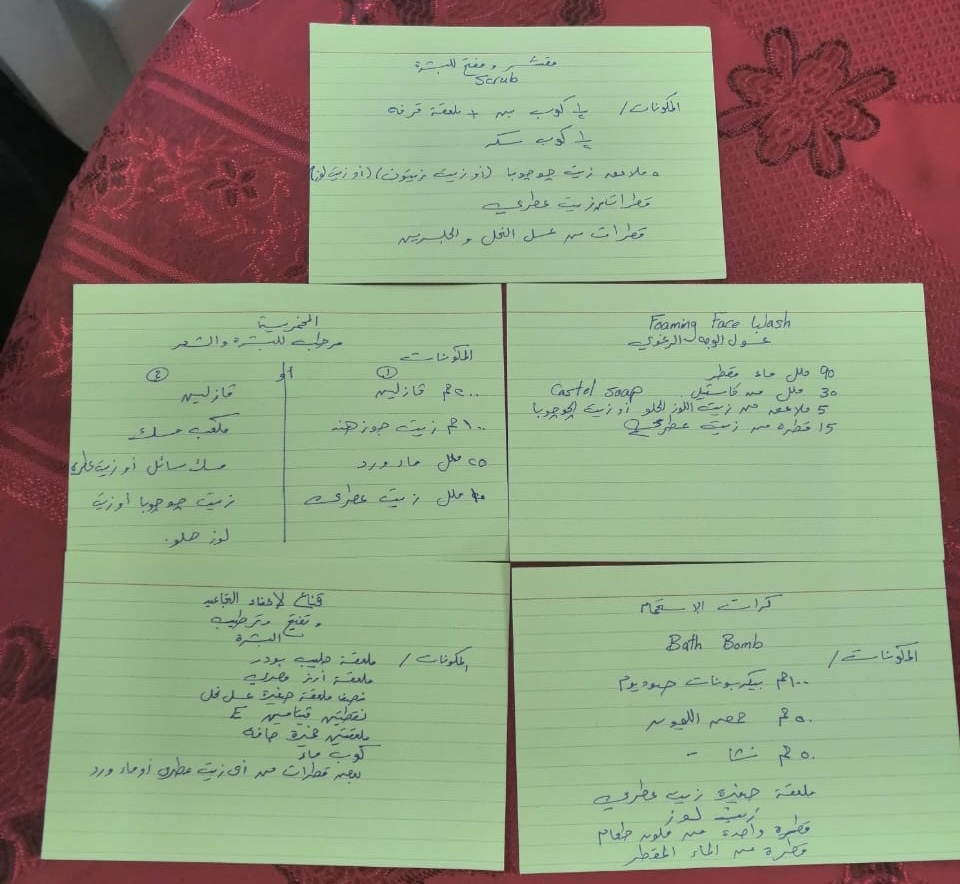 مقشر ومفتح للبشرة
Scrub
المكونات / ½ كوب بن + ملعقة قرفه
½ كوب سكر
٥ ملاعقه زيت جوجوبا (أو زيت زيتون) (أو زيت لوز)
قطرات من زيت عطري
قطرات من عسل النحل والجلسرين
المخمرية
مرطب للبشرة والشعر
المكونات
① أو ②
٢٠٠ جم فازلين
١٠٠ جم زيت جوز هند
٢٥ ملل ماء ورد
ملل زيت عطري
فازلين
مكعب مسك
مسك سائل أو زيت عطري
زيت جوجوبا أو زيت
لوز حلو.
Foaming Face Wash
غسول الوجه الرغوي
90 ملل ماء مقطر
30 ملل من كاستيل Castel soap
5 ملاعقه من زيت اللوز الحلو أو زيت الجوجوبا
15 قطره من زيت عطري
قناع لإخفاء التجاعيد
وتفتيح وترطيب
البشرة
المكونات / ملعقة حليب بودر
ملعقة أرز مصري
نصف ملعقة صغيرة عسل نحل
نقطتين فيتامين E
ملعقتين خميرة جافه
كوب ماء
بعض قطرات من أى زيت عطرى أو ماء ورد
كرات الاستحمام
Bath Bomb
المكونات /
١٠٠ جم بيكربونات صوديوم
٥٠ جم حمض الليمون
٥٠ جم نشا -
ملعقة صغيرة زيت عطري
زيت لوز
قطرة واحدة من ملون طعام
قطرة من الماء المقطر